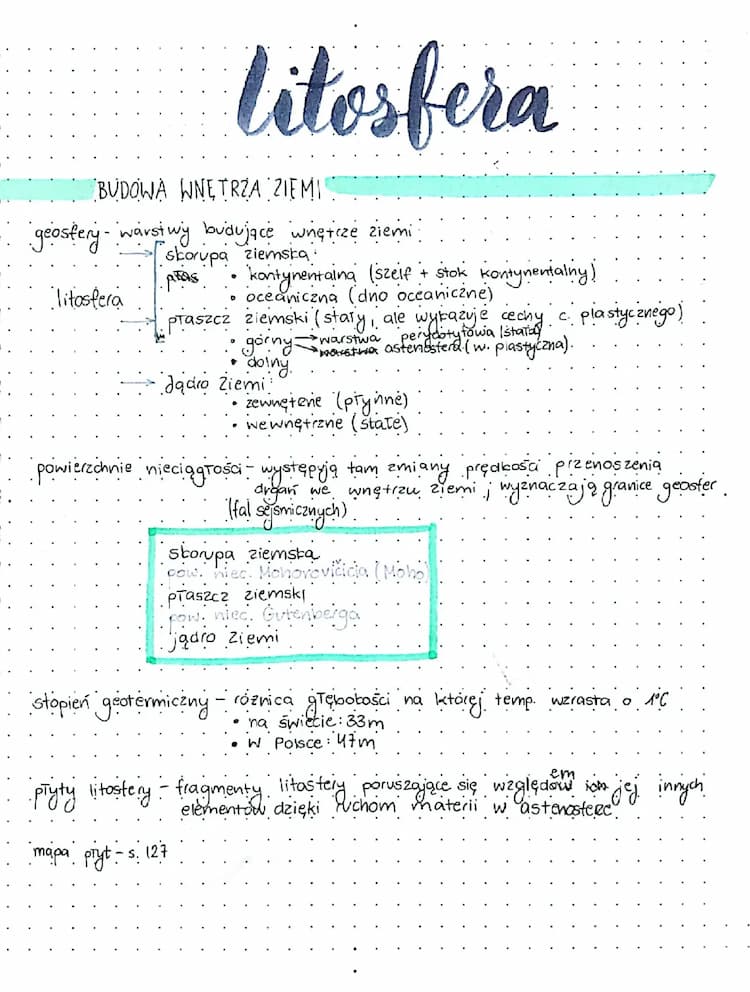 litosfera
BUDOWA WNĘTRZA ZIEMI
geosfery - warstwy budujące wnętrze ziemi
→ skorupa ziemska
płas • kontynentalna (szelf + stok kontynentalny)
litosfera
• oceaniczna (dno oceaniczne)
→ płaszcz ziemski (stały, ale wykazuje cechy c. plastycznego)
• górny → warstwa perydotytowa (stała)
→ warstwa astenosfera (w. plastyczna)
• dolny
→ Jądro Ziemi:
• zewnętrzne (płynne)
• wewnętrzne (stałe)
powierzchnie nieciągłości - występują tam zmiany prędkości przenoszenia
drgań we wnętrzu ziemi, wyznaczają granice geosfer.
(fal sejsmicznych)
skorupa ziemska
pow. niec. Mohorovičicia (Moho)
płaszcz ziemski
pow. niec. Gutenberga
jądro ziemi
stopień geotermiczny - różnica głębokości na której temp. wzrasta o 1°C
• na świecie: 33m
• w Polsce: 47m
płyty litosfery - fragmenty litosfery poruszające się względem jej innych
elementów dzięki ruchom materii w astenosferze
mapa płyt - s. 127